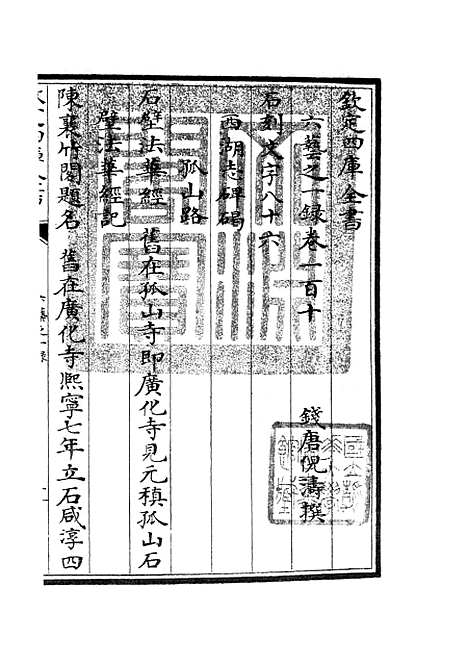 欽定四庫全書
六藝之一錄卷一百十
錢唐倪濤撰
石刻文字八十六
西湖志碑碣
孤山路
石壁法華經 舊在孤山寺即廣化寺見元稹孤山石
壁法華經記
陳襄竹閣題名 舊在廣化寺熙寧七年立石咸淳四